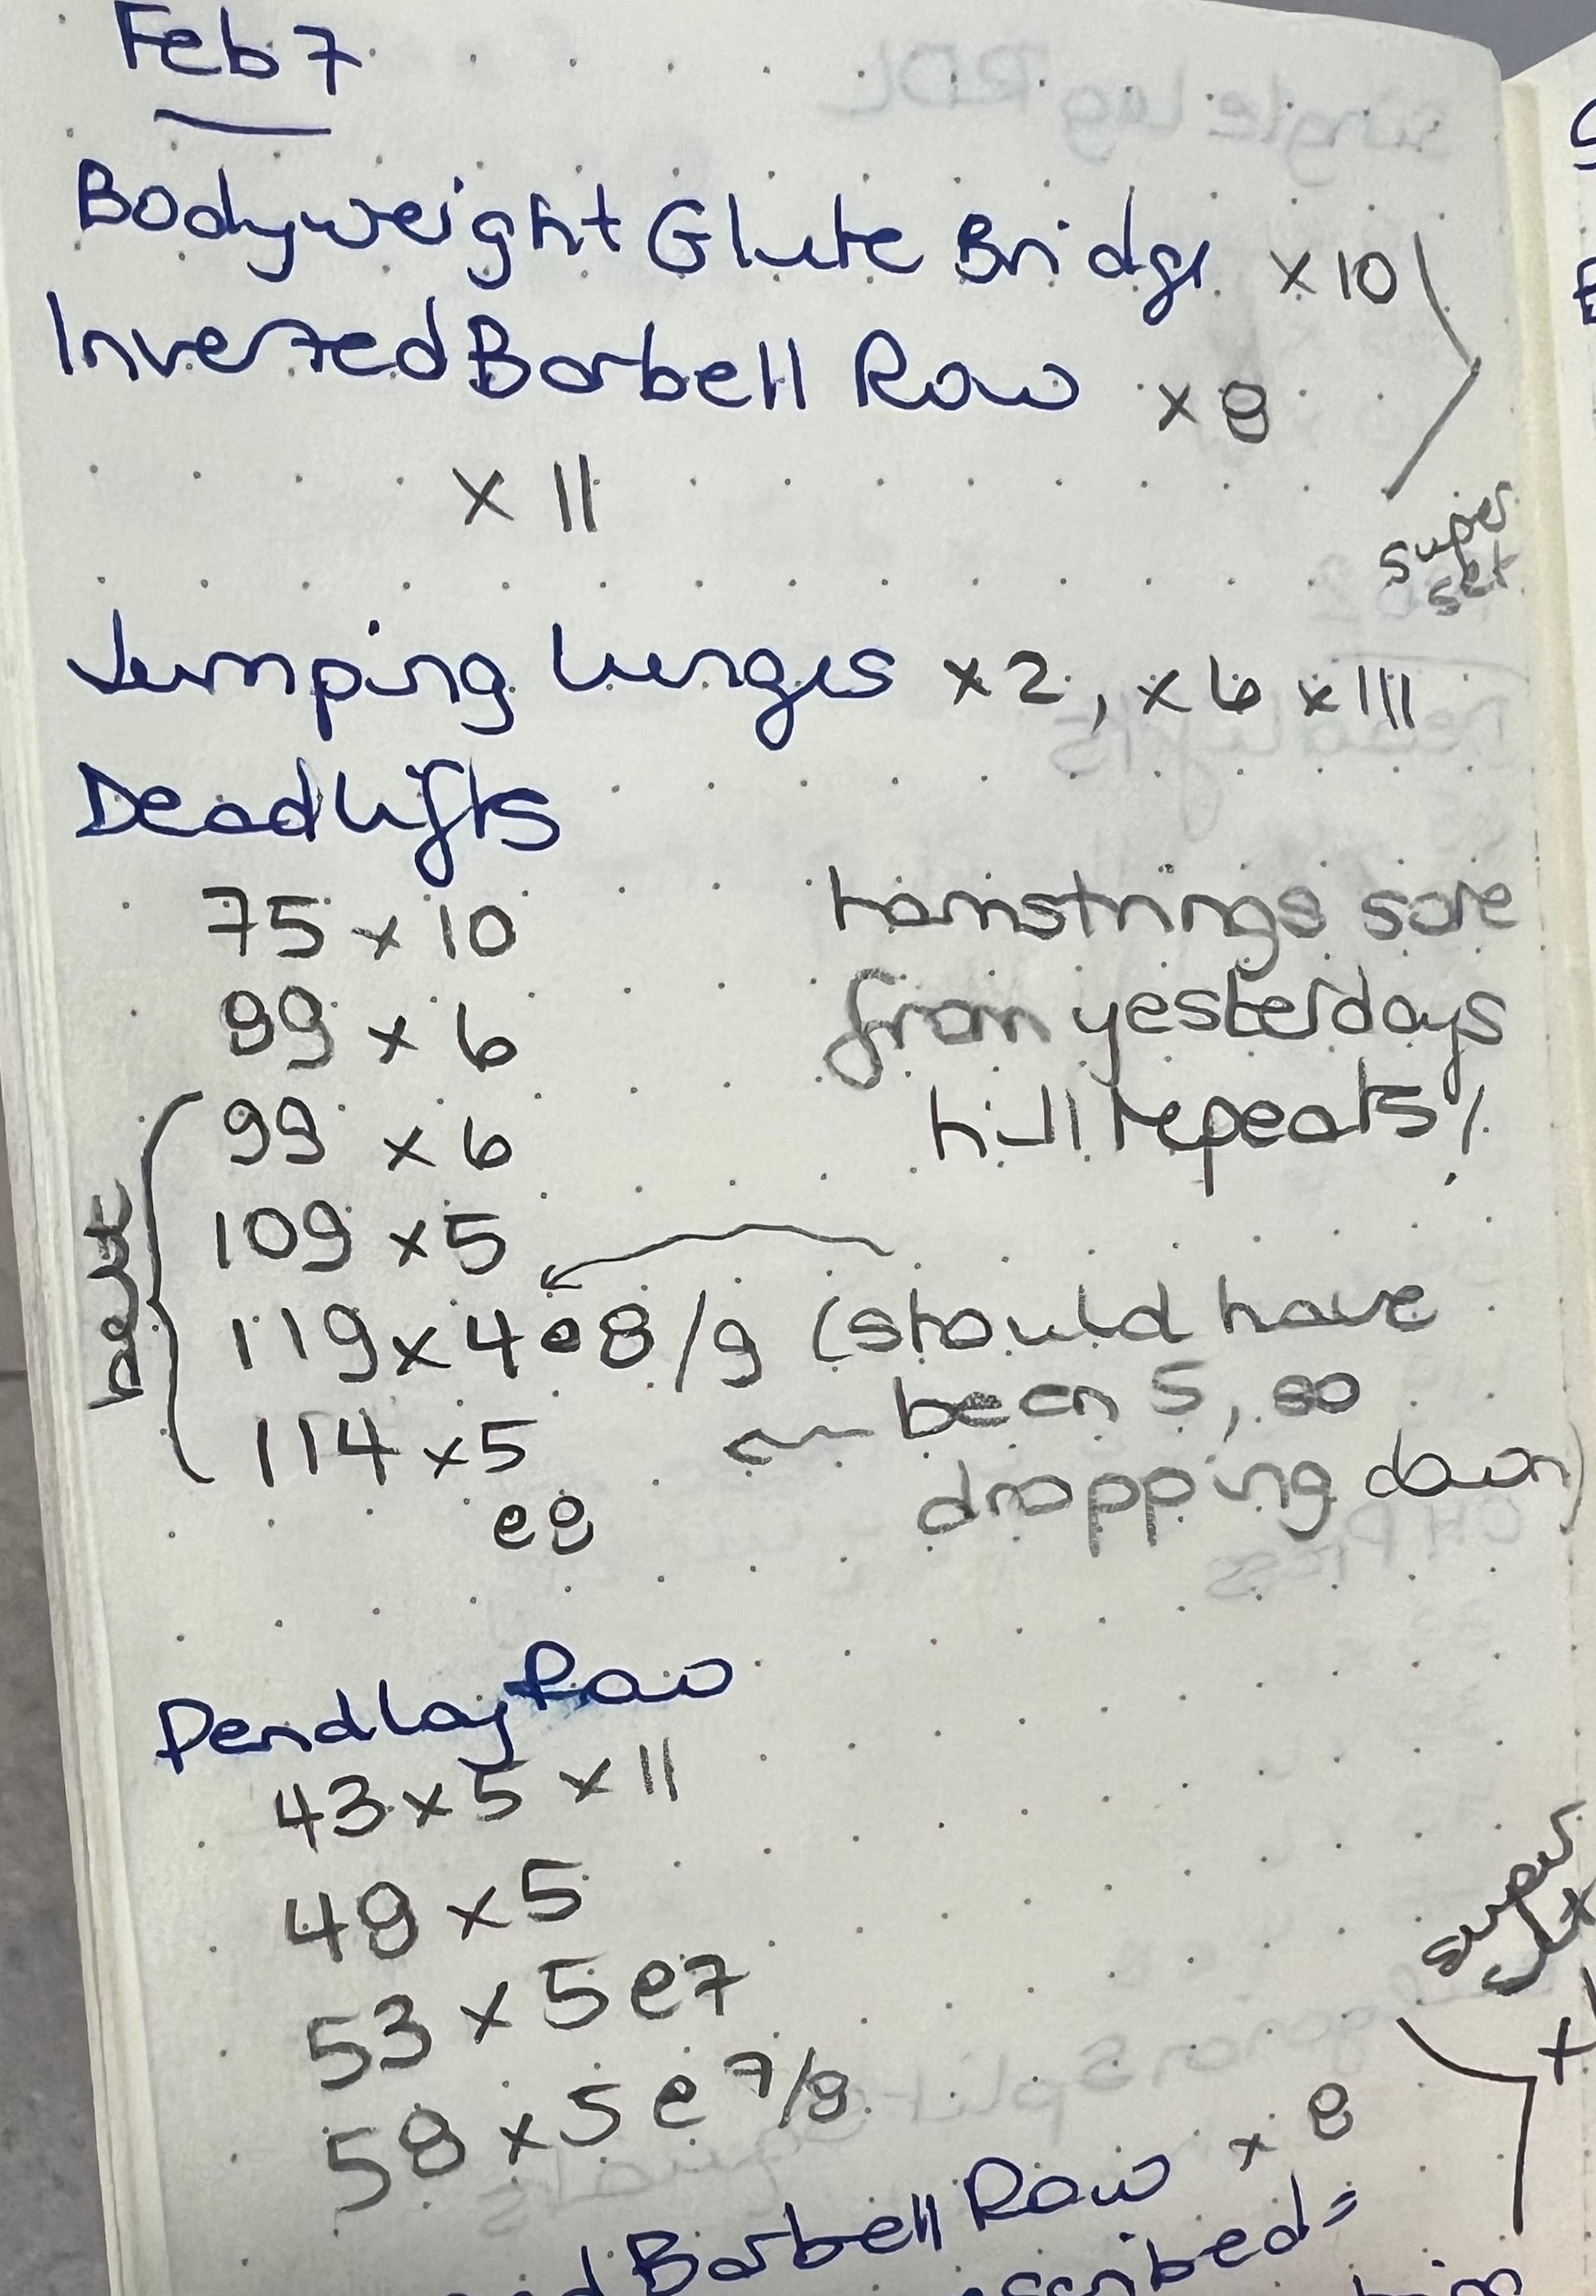 Feb 7
Bodyweight Glute Bridge x10
Inverted Barbell Row x8
x ||
super
set
Jumping Lunges x2, x6 x|||
Deadlifts
75 x 10
hamstrings sore
99 x 6
from yesterdays
99 x 6
hill repeats!
belt
109 x 5
119 x 4 e8/9 (should have
been 5, so
114 x 5
dropping down)
e8
Pendlay Row
43 x 5 x ||
48 x 5
53 x 5 e7
58 x 5 e 7/8
super
Barbell Row x 8